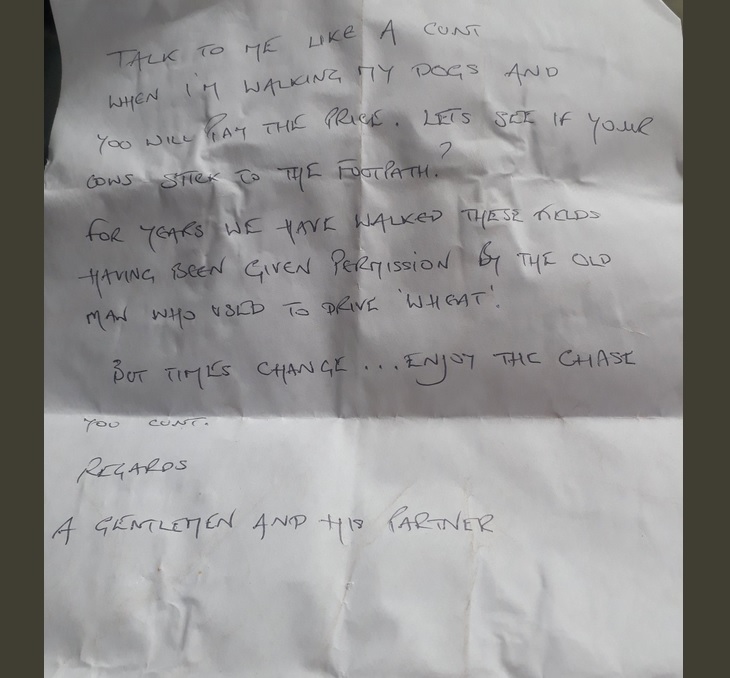 TALK TO ME LIKE A CUNT
WHEN I'M WALKING MY DOGS AND
YOU WILL PAY THE PRICE. LETS SEE IF YOUR
COWS STICK TO THE FOOTPATH.?
FOR YEARS WE HAVE WALKED THESE FIELDS
HAVING BEEN GIVEN PERMISSION By THE OLD
MAN WHO USED TO DRIVE 'WHEAT'.
BUT TIMES CHANGE ... ENJOY THE CHASE
YOU CUNT.
REGARDS
A GENTLEMEN AND HIS PARTNER